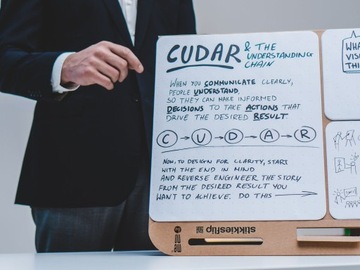 CUDAR & THE
UNDERSTANDING
CHAIN
WHEN YOU COMMUNICATE CLEARLY,
PEOPLE UNDERSTAND,
SO THEY CAN MAKE INFORMED
DECISIONS TO TAKE ACTIONS THAT
DRIVE THE DESIRED RESULT
C → U → D → A → R
NOW, TO DESIGN FOR CLARITY, START
WITH THE END IN MIND
AND REVERSE ENGINEER THE STORY
FROM THE DESIRED RESULT YOU
WANT TO ACHIEVE. DO THIS →
stikkiesflip
WHA
VISU
THIN